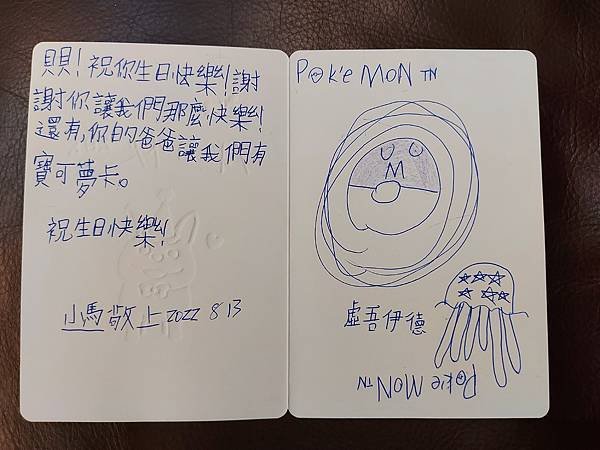 貝貝！祝你生日快樂！謝
謝你讓我們那麼快樂！
還有，你的爸爸讓我們有
寶可夢卡。
祝生日快樂！
小馬敬上 2022 8 13
Pok'e MON TN
M
虛吾伊德
Pok'e MON TN